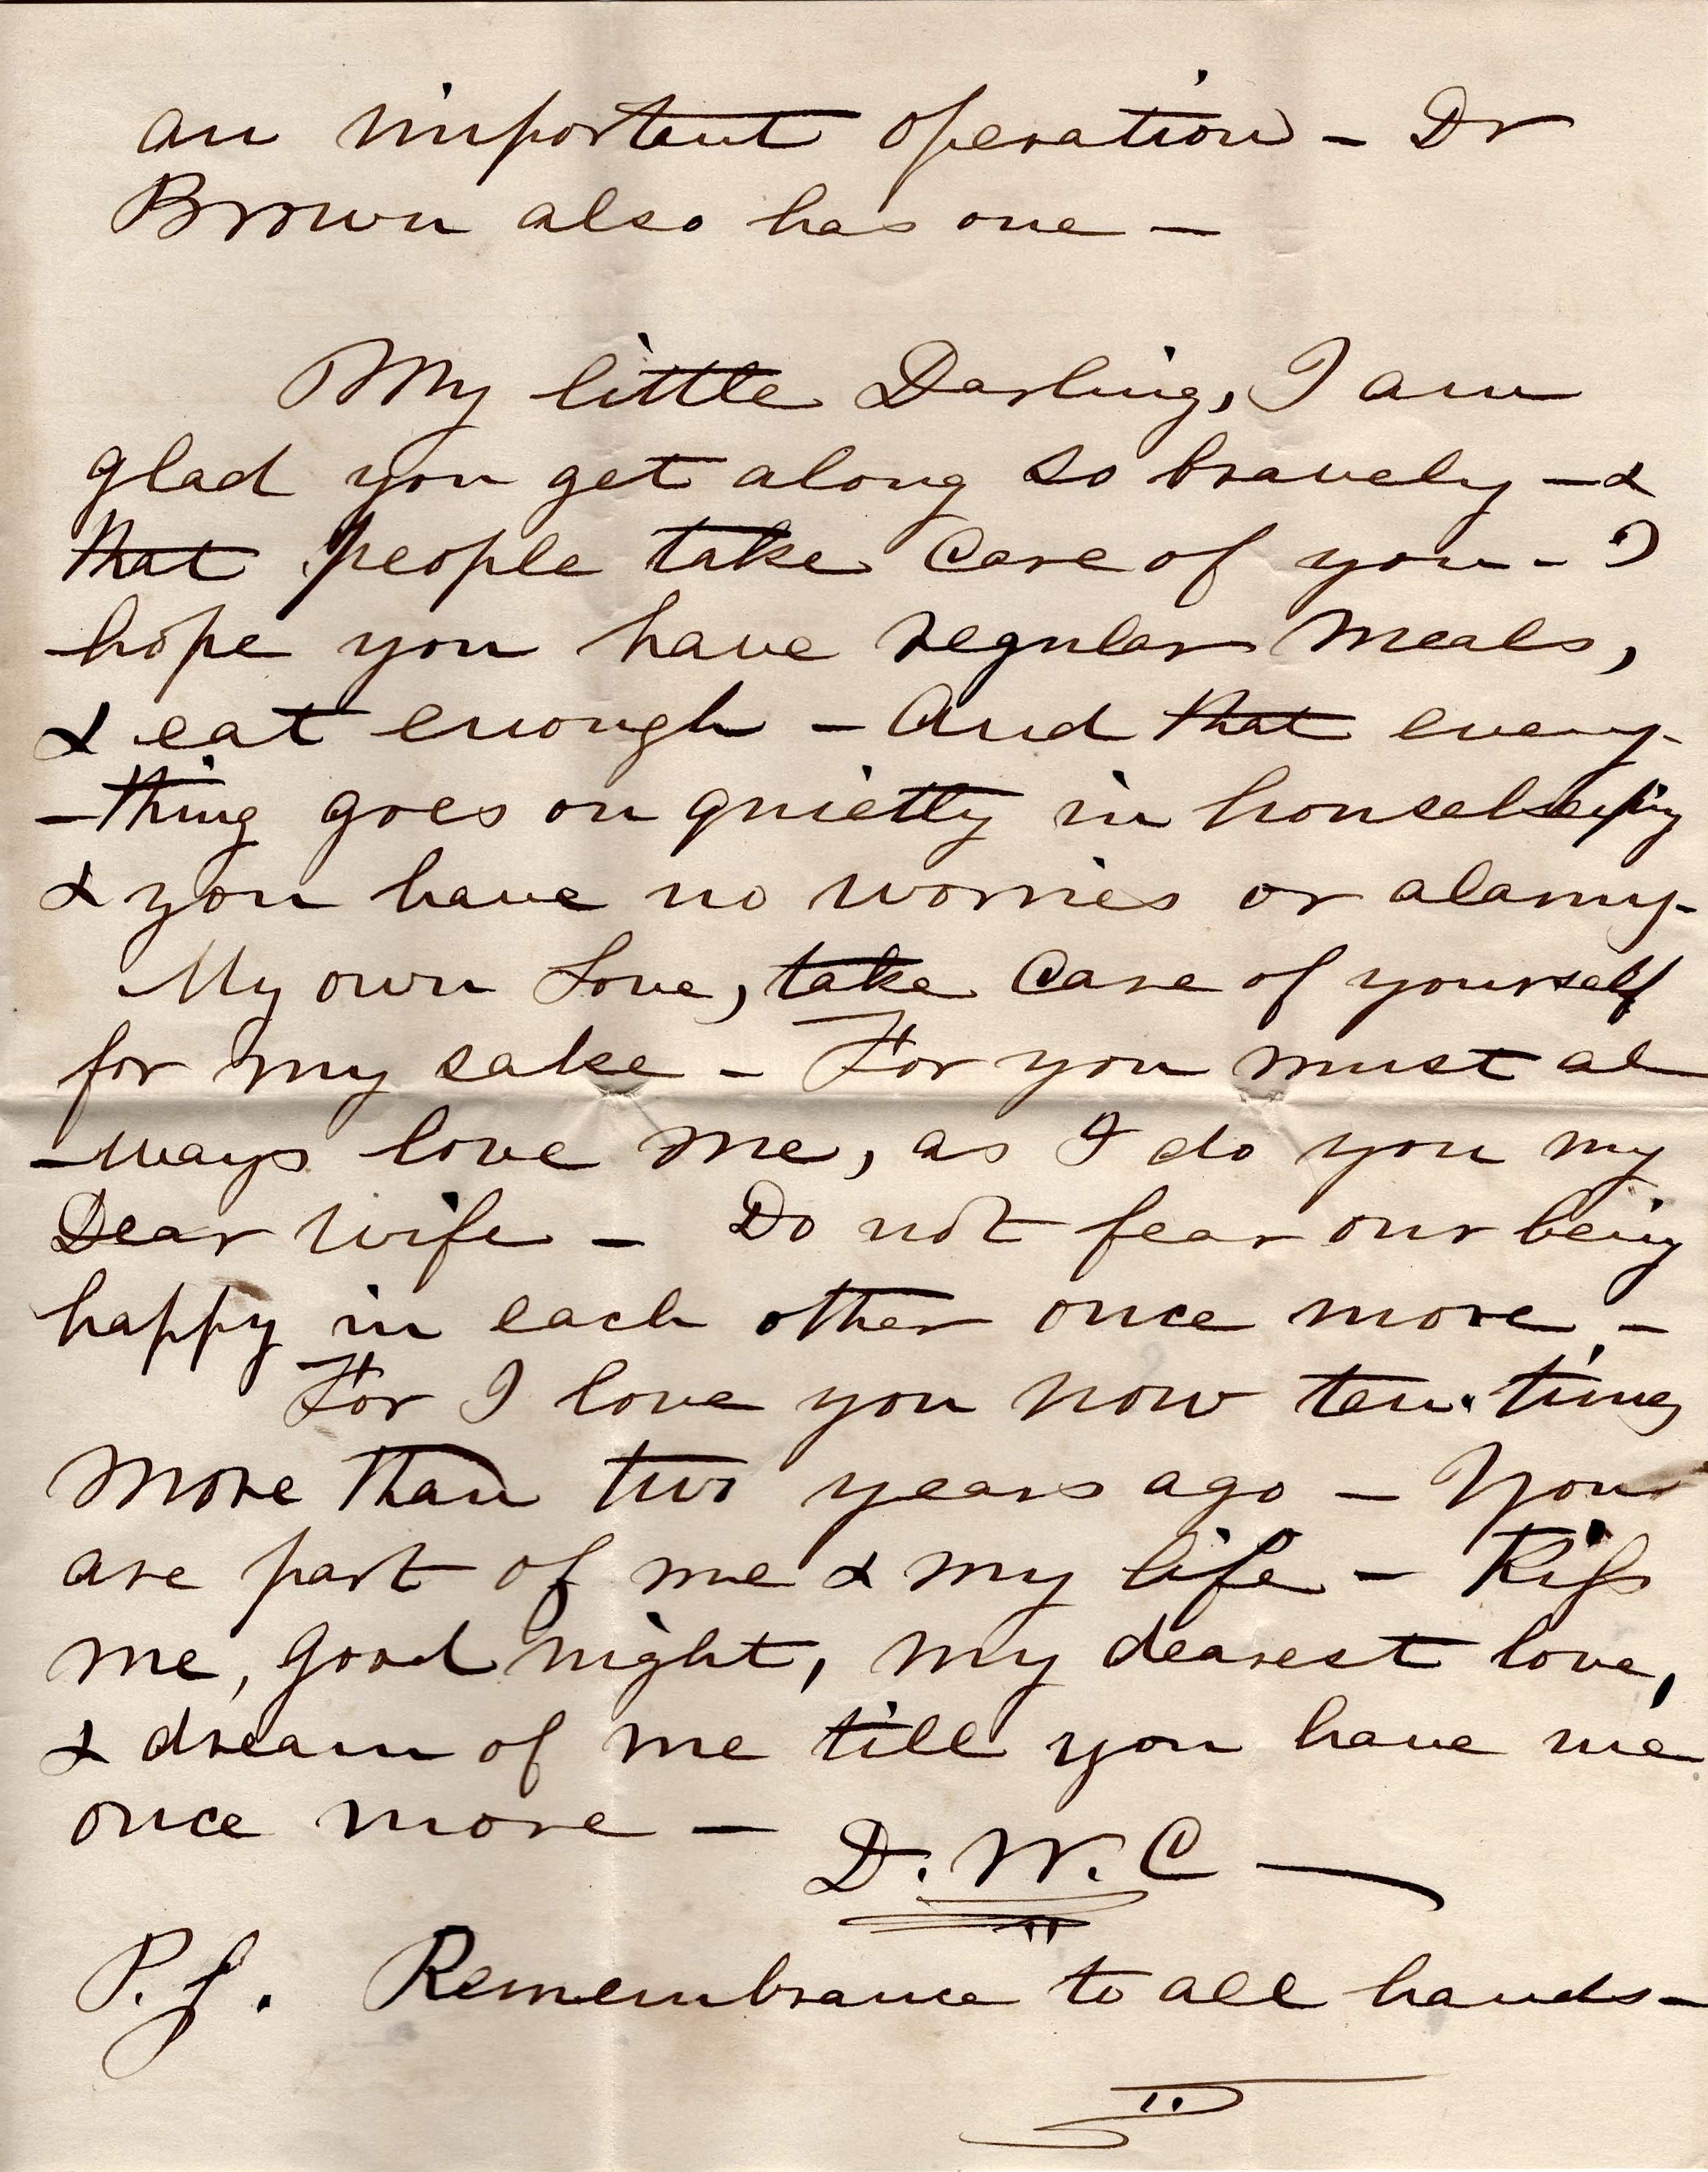 an important operation – Dr
Brown also has one –
My little Darling, I am
glad you get along so bravely – &
that people take care of you – I
hope you have regular meals,
& eat enough – And that every-
-thing goes on quietly in housekeeping
& you have no worries or alarms –
My own Love, take care of yourself
for my sake – For you must al
-ways love me, as I do you my
Dear wife – Do not fear our being
happy in each other once more –
For I love you now ten times
more than two years ago – You
are part of me & my life – Kiss
me, good night, my dearest love,
& dream of me till you have me
once more –
D. W. C –
P.S. Remembrance to all hands –